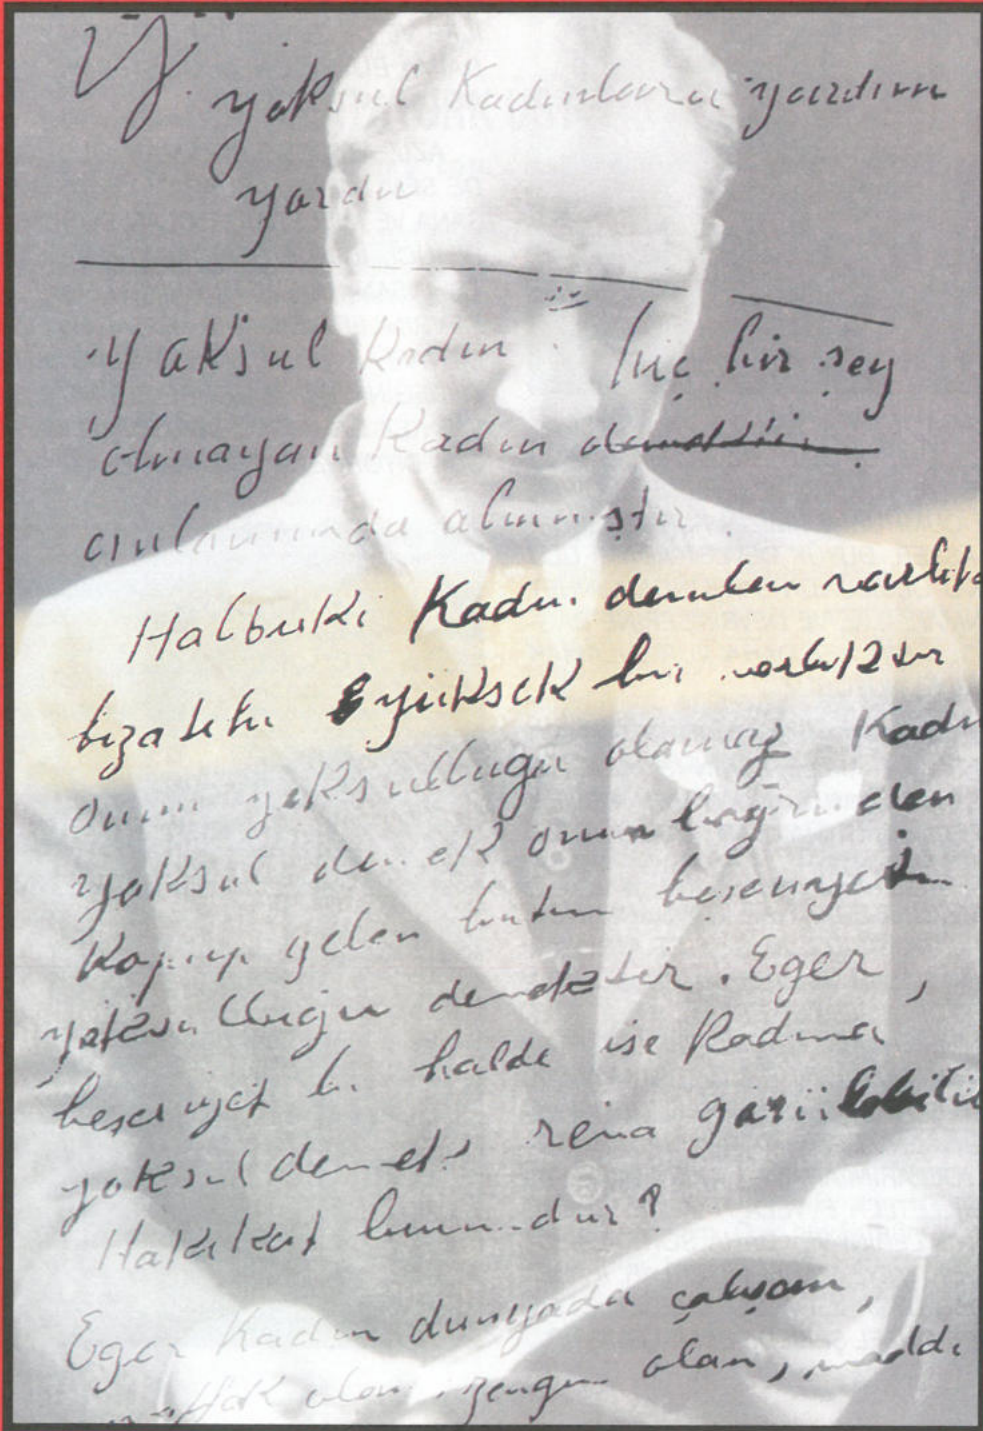 yoksul Kadınlara yardım
yardu
Yoksul Kadın: hiç bir şey
olmayan Kadın demektir
anlamında alınmıştır.
Halbuki Kadın denilen varlık
bizatihi yüksek bir varlıktır
Onun yoksulluğu olamaz Kadı
yoksul demek onun bağrından
Kopup gelen bütün beşeriyetin
yoksulluğu demektir. Eğer,
beşeriyet bu halde ise Kadına
yoksul demek reva görüle bilir
Hakikat bumudur?
Eğer Kadın dünyada çalışan,
olan, zengin olan, maddi